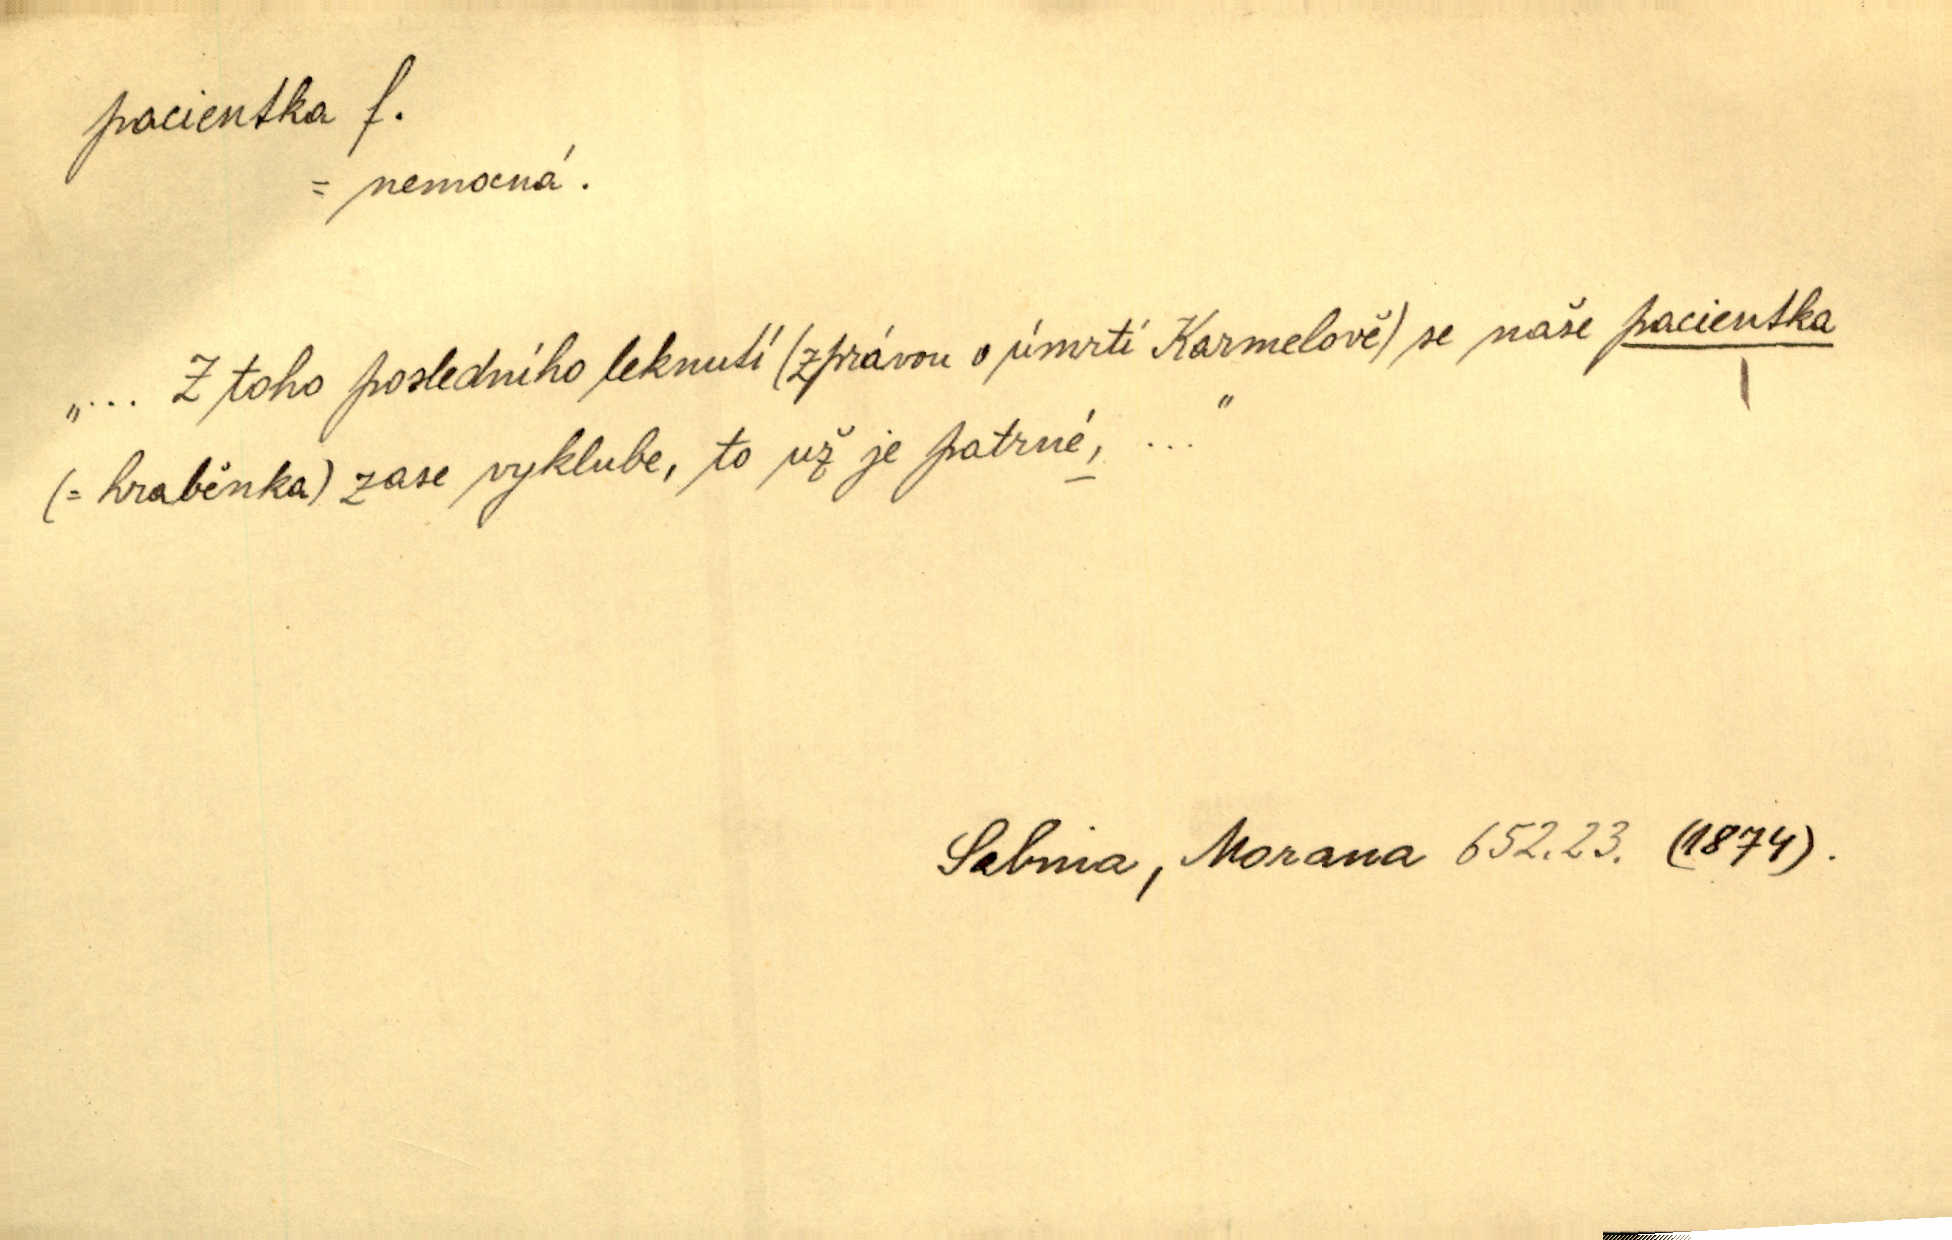 pacientka f.
= nemocná.
„... Z toho posledního leknutí (zprávou o úmrtí Karmelově) se naše pacientka
(= hraběnka) zase vyklube, to už je patrné, ..."
Sabina, Morana 652.23. (1874).